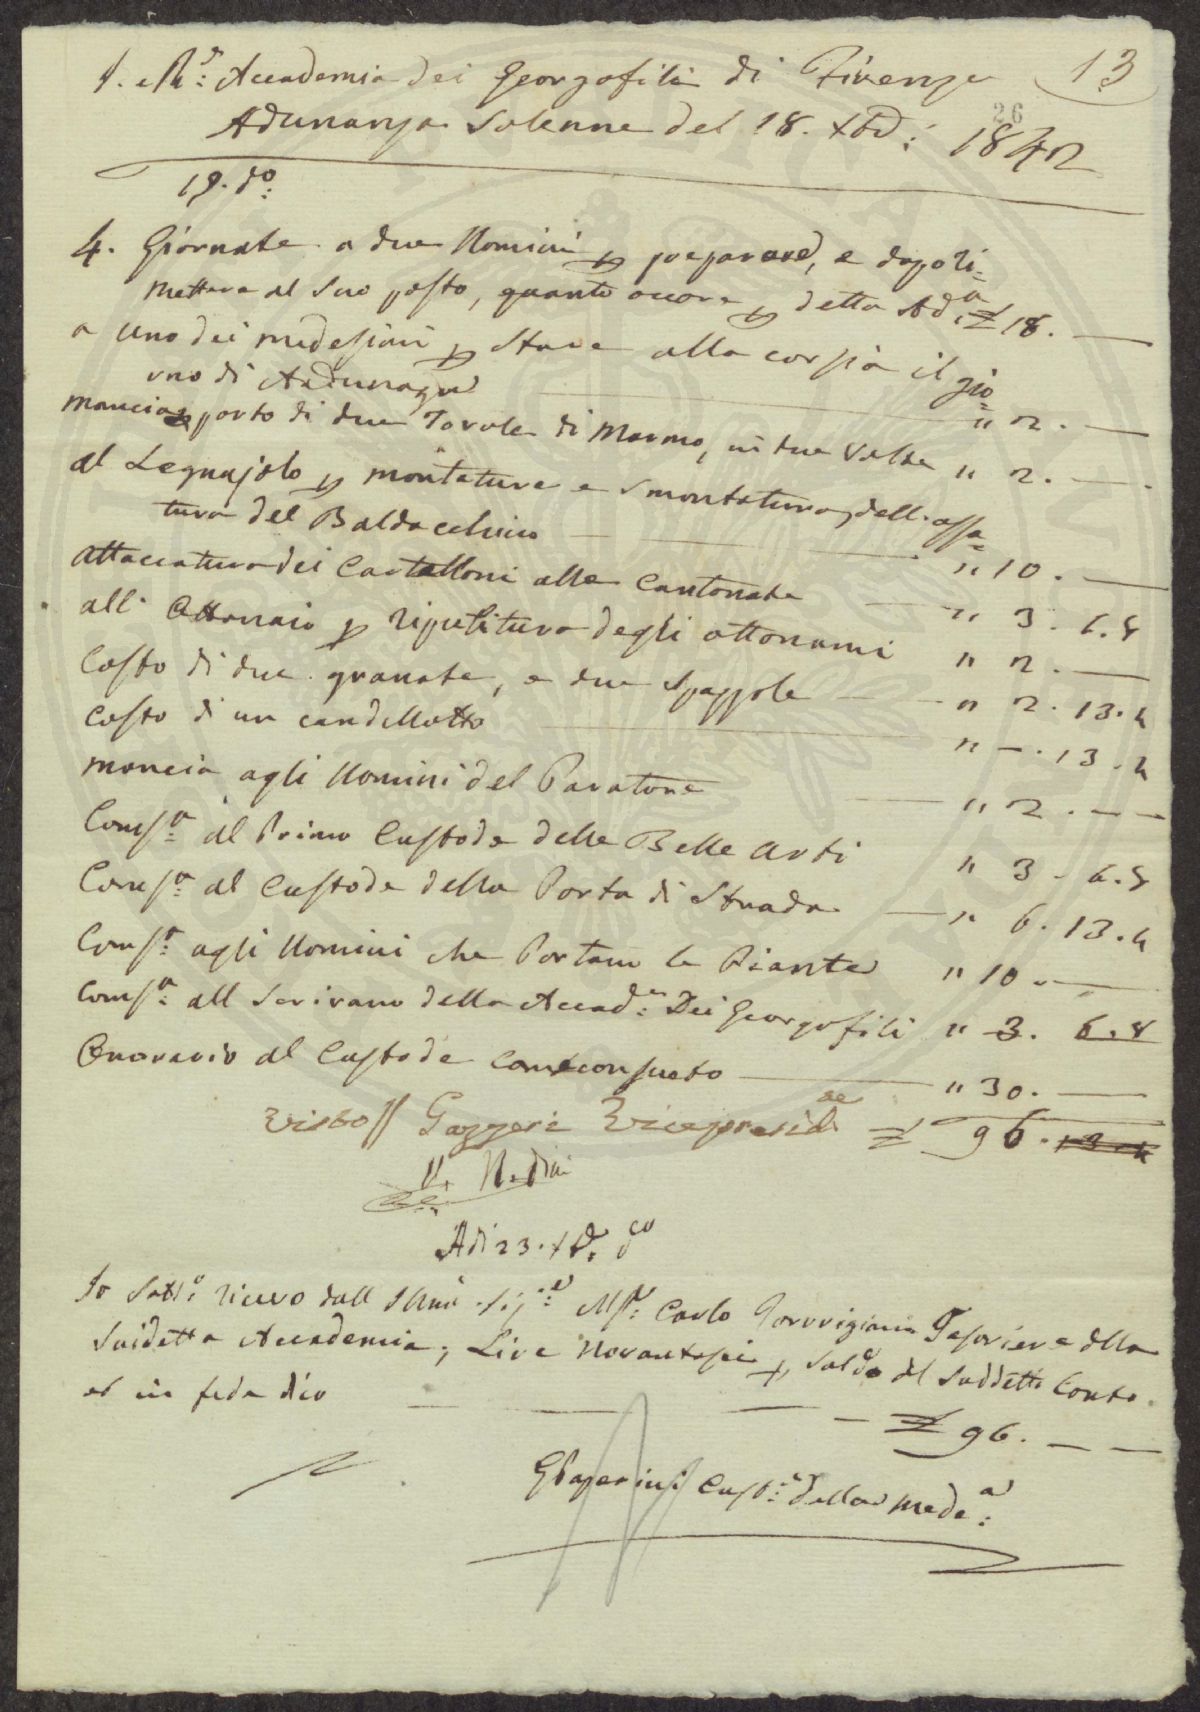 I. e R.: Accademia dei Georgofili di Firenze 13
26
Adunanza Solenne del 18. Xbr: 1842
19. do:
4. Giornate a due Uomini p preparare, e dopo ri=
mettere al suo posto, quanto occore p detta Ada: £ 18. —
a uno dei medesimi p stare alla corsia il gio=
rno di Adunanza " 2. —
mancia porto di due Tavole di Marmo, in due volte " 2. —
al Legnajolo p montatura e smontatura, dell. ossa=
tura del Baldacchino — " 10. —
attaccatura dei Cartelloni alle Cantonate — " 3. 6. 8
all' Ottonaio p ripulitura degli ottonami " 2. —
Costo di due granate, e due spazzole — " 2. 13. 4
Costo di un candellotto — " —. 13. 4
mancia agli Uomini del Paratore — " 2. —
Compa: al Primo Custode delle Belle Arti " 3. 6. 8
Compa: al Custode della Porta di Strada — " 6. 13. 4
Compa: agli Uomini che Portano le Piante " 10. —
Compa: all Scrivano della Accada: Dei Georgofili " 3. 6. 8
Onorario al Custode come consueto — " 30. —
Visto G Gazzeri Vicepreside £ 96. 13. 4
Adi 23. Xbr. do
Io Sotto: ricevo dall Illmo Sigre: Mse: Carlo Torrigiani Tesoriere della
Suidetta Accademia, Lire Novantasei p saldo del suddetto Conto.
ed in fede dico — — — — £ 96. — —
Gasperini Custe: della Medea: